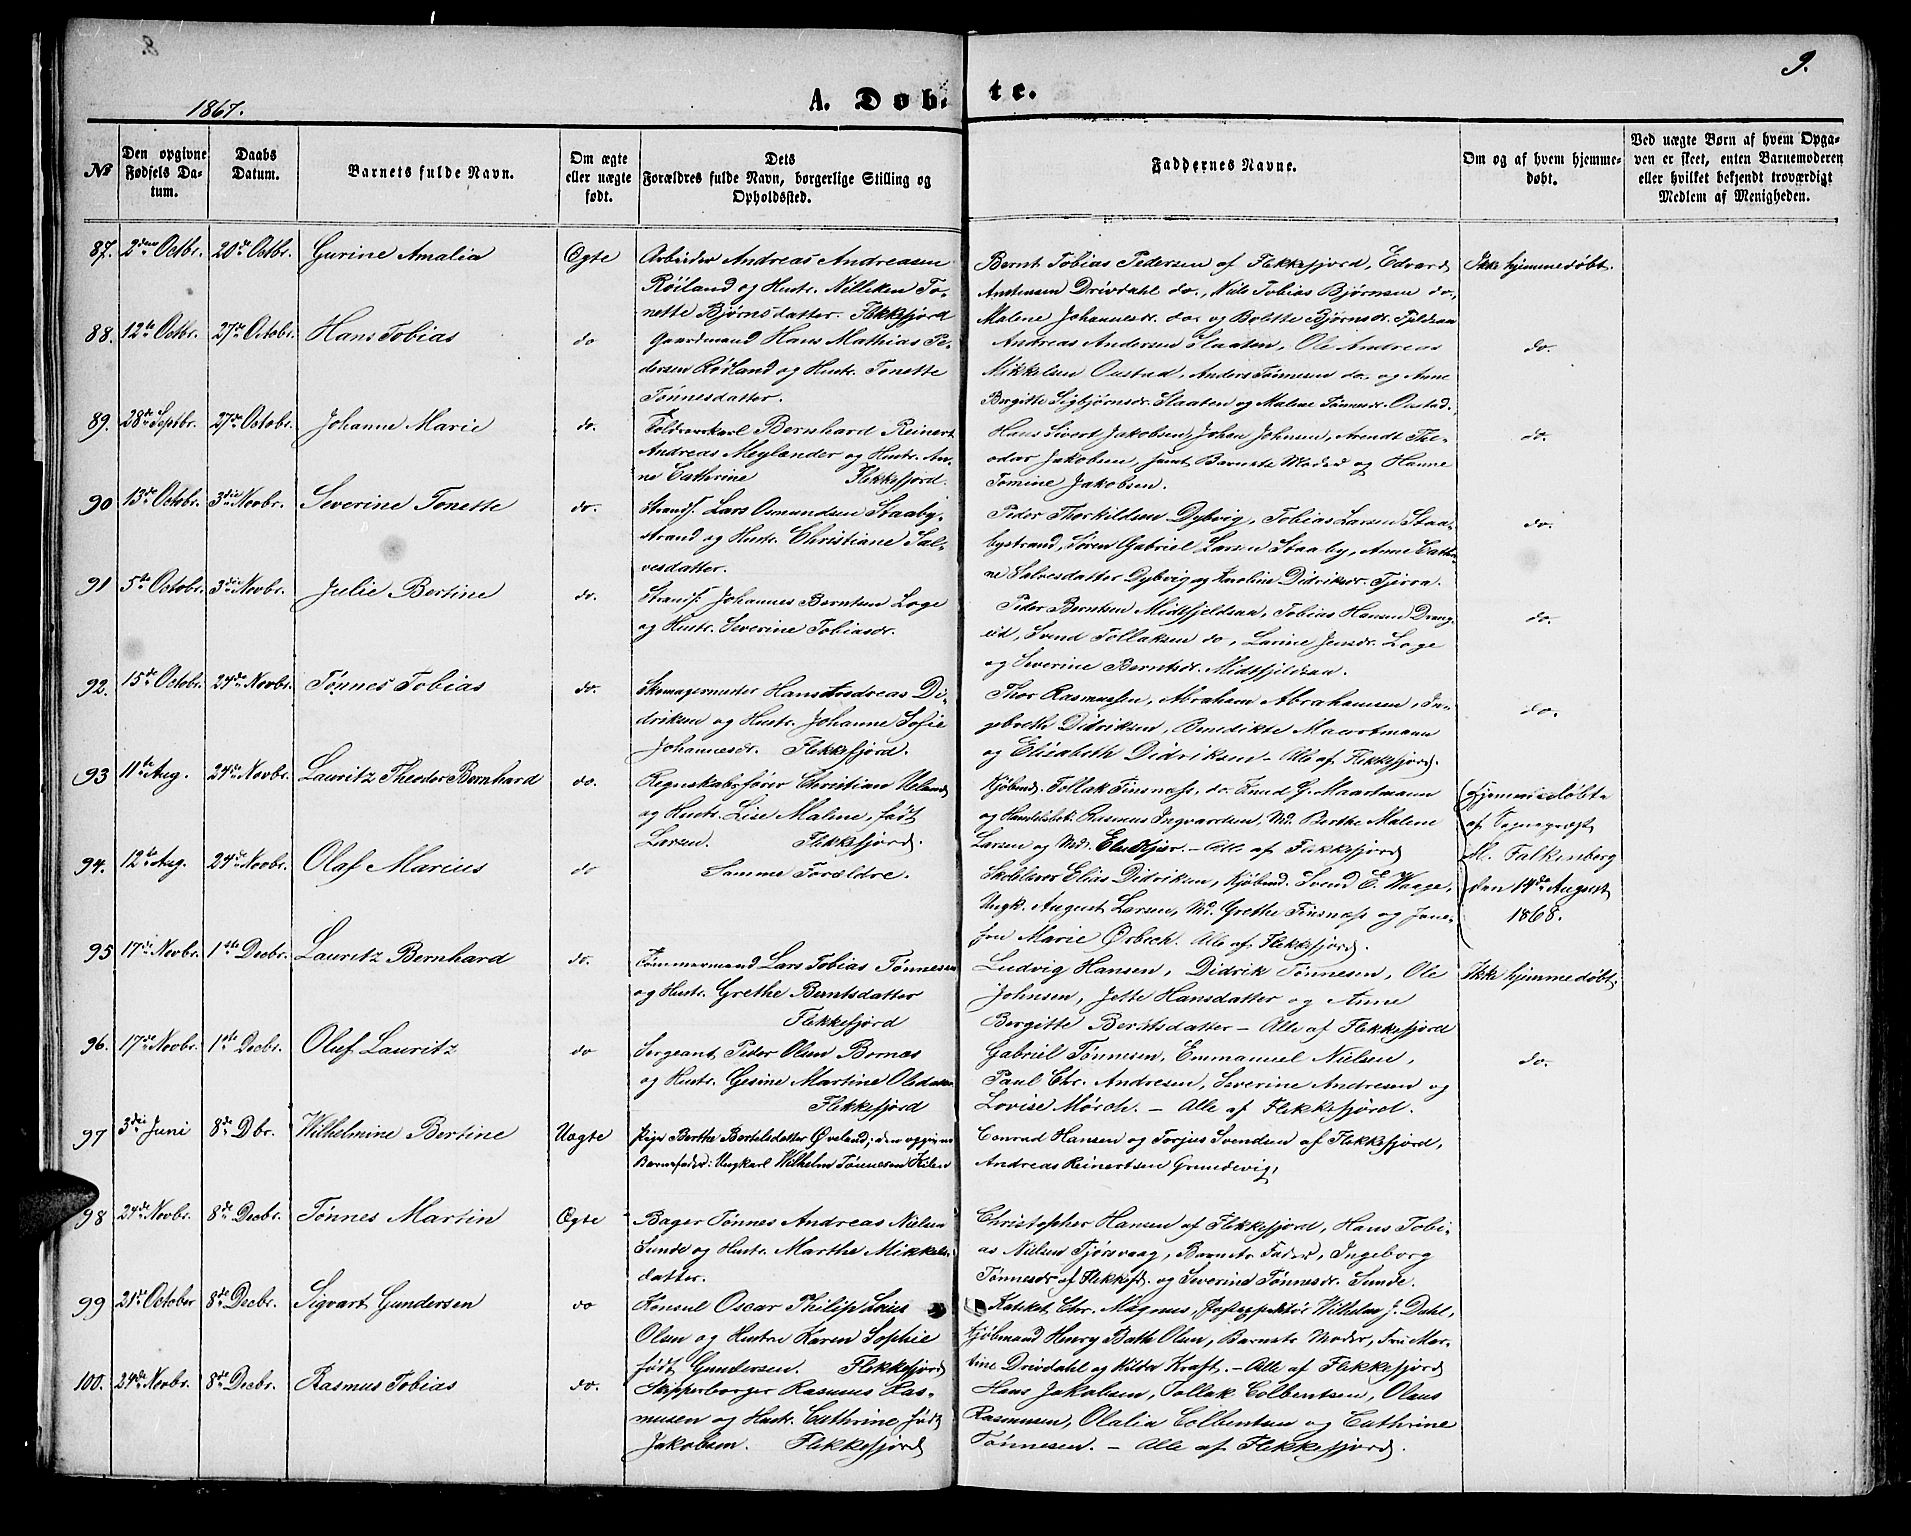 8.
9.
1867.
A. Dob-
te.
No
Den opgivne Fødsels Datum.
Daabs Datum.
Barnets fulde Navn.
Om ægte eller uægte født.
Dets Forældres fulde Navn, borgerlige Stilling og Opholdssted.
Faddernes Navne.
Om og af hvem hjemmedøbt.
Ved uægte Børn af hvem Opgaven er skeet, enten Barnemoderen eller hvilket bekjendt troværdigt Medlem af Menigheden.
87. 2den Octbr. 20de Octbr. Gurine Amalia Ægte Arbeider Andreas Andreasen
Røiland og Hustr. Nilliken To-
nette Bjørnsdatter. Flekkefjord
Bernt Tobias Pedersen af Flekkefjord, Edvard Ikke hjemmedøbt.
Andersen Drivdahl do., Nils Tobias Bjørnsen do.,
Malene Johannesdr. do. og Bolette Bjørnsdr. Fjeldsaa
88. 12te Octbr. 27de Octobr. Hans Tobias do Gaardmand Hans Mathias Pe-
dersen Rødland og Hustr. Tonette
Tønnesdatter.
Andreas Andersen Slaaten, Ole Andreas do.
Mikkelsen Oustad, Anders Tønnesen do. og Anne
Birgitte Sigbjørnsdr. Slaaten og Malene Tønnesdr. Oustad.
89. 28de Septbr. 27de Octobr. Johanne Marie do. Toldroerkarl Bernhard Reinert
Andreas Meylænder og Hustr. An-
ne Cathrine Flekkefjord.
Hans Sivert Jakobsen, Johan Johnsen, Arendt The- do.
odor Jakobsen, samt Barnets Moder og Hanne
Tomine Jakobsen.
90 13de Octobr. 3die Novbr. Severine Tonette do. Strands. Lars Osmundsen Staaby-
strand og Hustr. Christiane Sal-
vesdatter.
Peder Thorkildsen Dybvig, Tobias Larsen Staa- do.
bystrand, Søren Gabriel Larsen Staaby, Anne Cathri-
ne Salvesdatter Dybvig og Karoline Didriksdr. Tjersa.
91 5te Octobr. 3die Novbr. Julie Bertine do. Strands. Johannes Berntsen Loge
og Hustr. Severine Tobiasdr.
Peder Berntsen Midtfjeldsaa, Tobias Hansen Drang- do.
eid, Svend Tollaksen do, Larine Jensdr. Loge
og Severine Berntsdr. Midtfjeldsaa.
92. 15de Octobr. 24de Novbr. Tønnes Tobias do. Skomagermester Hans Andreas Di-
driksen og Hustr. Johanne Sofie
Johannesdr. Flekkefjord.
Thor Rasmussen, Abraham Abrahamsen, In- do.
gebreth Didriksen, Benedikte Maartmann
og Elisabeth Didriksen – Alle af Flekkefjord.
93 11te Aug. 24de Novbr. Lauritz Theodor Bernhard do. Regnskabsfører Christian Ueland
og Hustr. Lise Malene, født
Larsen. Flekkefjord.
Kjøbmd. Tollak Finsnæs, do. Knud G. Maartmann
og Handelsbet. Rasmus Ingvardsen, Md. Berthe Malene
Larsen og Md. – Alle af Flekkefjord
Hjemmedøbte
af Sogneprest
M. Falkenberg
den 14de August
1868.
94. 12te Aug. 24de Novbr. Olaf Marius do Samme Forældre.
Skolelærer Elias Didriksen, Kjøbmd. Svend E. Waage,
Ungk. August Larsen, Md. Grethe Finsnæs og Jom-
fru Marie Ørbech. Alle af Flekkefjord.
95 17de Novbr. 1ste Decbr. Lauritz Bernhard do. Tømmermand Lars Tobias Tønnesen
og Hustr. Grethe Berntsdatter
Flekkefjord
Ludvig Hansen, Didrik Tønnesen, Ole Ikke hjemmedøbt.
Johnsen, Jette Hansdatter og Anne
Bergitte Berntsdatter – Alle af Flekkefjord
96. 17de Novbr. 1ste Decbr. Oluf Lauritz do Sergeant Peder Olsen Bornæs
og Hustr. Gesine Martine Olsdatter
Flekkefjord
Gabriel Tønnesen, Emmanuel Nielsen, do.
Paul Chr. Andresen, Severine Andresen og
Lovise Mørch. – Alle af Flekkefjord.
97 3die Juni 8de Dbr. Wilhelmine Bertine Uægte Pige Berthe Bertelsdatter Øveland; den opgivne
Barnefader: Ungkarl Wilhelm Tønnesen Kilen
Conrad Hansen og Torjus Svendsen af Flekkefjord,
Andreas Reinertsen Grundevig,
98 24de Novbr. 8de Decbr. Tønnes Martin Ægte Bager Tønnes Andreas Nielsen
Sunde og Hustr. Marthe Mikkels-
datter.
Christopher Hansen af Flekkefjord, Hans Tobi-
as Nielsen Tjørsvaag, Barnets Fader, Ingeborg
Tønnesdr af Flekkefjd. og Severine Tønnesdr. Sunde.
99 21de October 8de Decbr. Sigvart Gundersen do Konsul Oscar Philip Louis
Olsen og Hustru Karen Sophie
født Gundersen. Flekkefjord
Katiket Chr. Magnus, Wilhelm J. Dahl,
Kjøbmand Henry Bath Olsen, Barnets Moder, Fru Mar-
tine Drivdahl og Kilda Kraft. – Alle af Flekkefjord
100. 24de Novbr. 8de Decbr. Rasmus Tobias do. Skipperborger Rasmus Ras-
musen og Hustr. Cathrine født
Jakobsen. Flekkefjord
Hans Jakobsen, Tollak Colbentsen, Olaus
Rasmusen, Olalia Colbentsen og Cathrine
Tønnesen. – Alle af Flekkefjord.